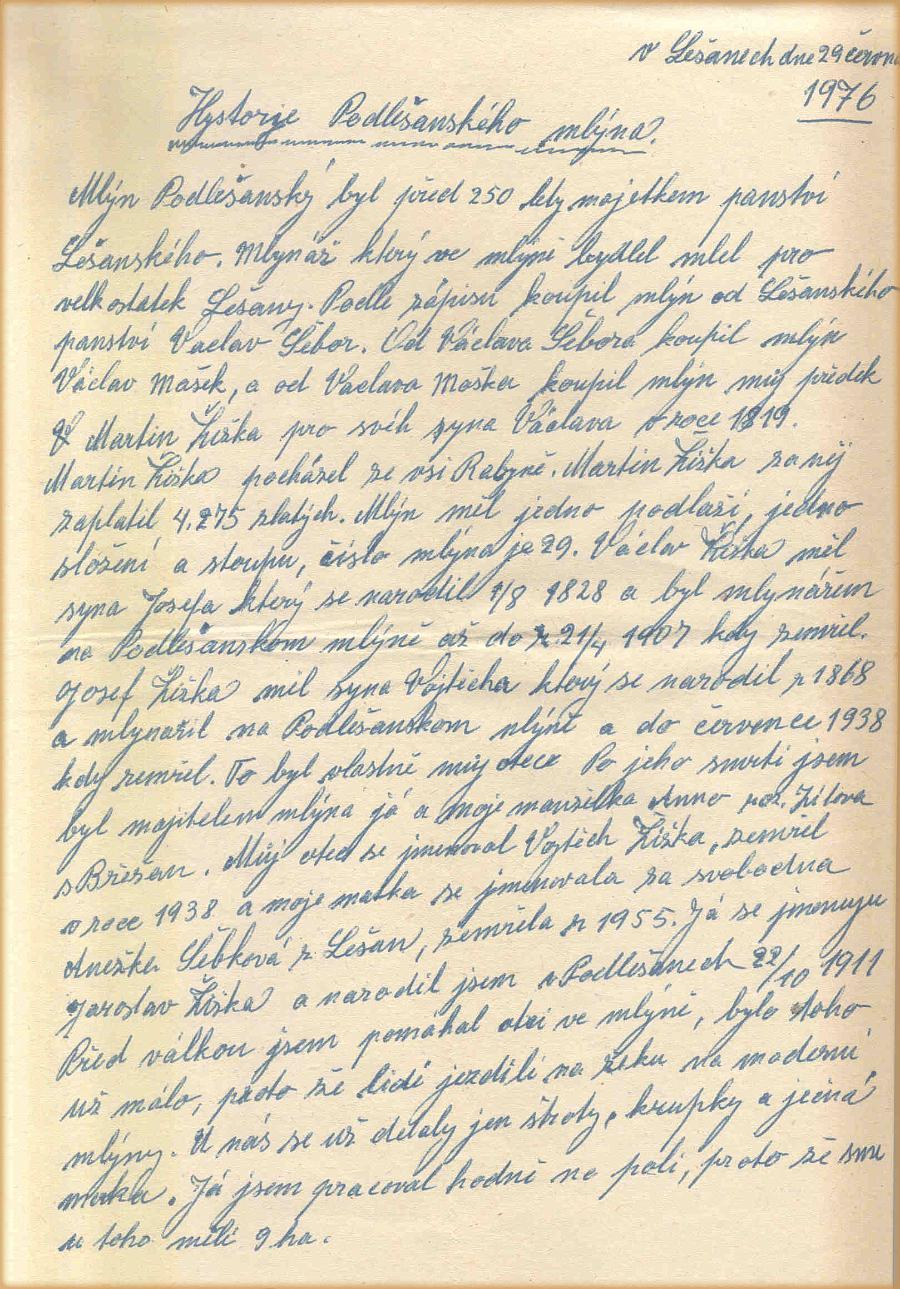 v Lešanech dne 29 června
1976
Hystorie Podlešanského mlýna.
Mlýn Podlešanský byl před 250 lety majetkem panství
Lešanského. Mlynář který ve mlýně bydlel mlel pro
velkostatek Lešany. Podle zápisu koupil mlýn od Lešanského
panství Vaclav Šebor. Od Václava Šebora koupil mlýn
Václav Mašek, a od Vaclava Maška koupil mlýn můj předek
Martin Žiška pro svéh syna Václava v roce 1819.
Martin Žiška pocházel ze vsi Rabyně. Martin Žiška za něj
zaplatil 4.275 zlatých. Mlýn měl jedno podlaží, jedno
složení a stoupu, číslo mlýna je 29. Václav Žiška měl
syna Josefa který se narodil 1/8 1828 a byl mlynářem
na Podlešanskom mlýně až do 21/4 1907 kdy zemřel.
Josef Žiška měl syna Vojtěcha který se narodil r 1868
a mlynařil na Podlešanskom mlýně a do července 1938
kdy zemřel. To byl vlastně můj otec Po jeho smrti jsem
byl majitelem mlýna já a moje manželka Anna roz. Zítova
s Břežan. Můj otec se jmenoval Vojtěch Žiška, zemřel
v roce 1938 a moje matka se jmenovala za svobodna
Anežka Šebková z Lešan, zemřela r 1955. Já se jmenuju
Jaroslav Žiška a narodil jsem v Podlešanech 22/10 1911
Před válkou jsem pomáhal otci ve mlýně, bylo toho
už málo, proto že lidi jezdili na řeku na moderní
mlýny. U nás se už dělaly jen šroty, krupky a ječná
mouka. Já jsem pracoval hodně na poli, proto že sme
u toho měli 9 ha.